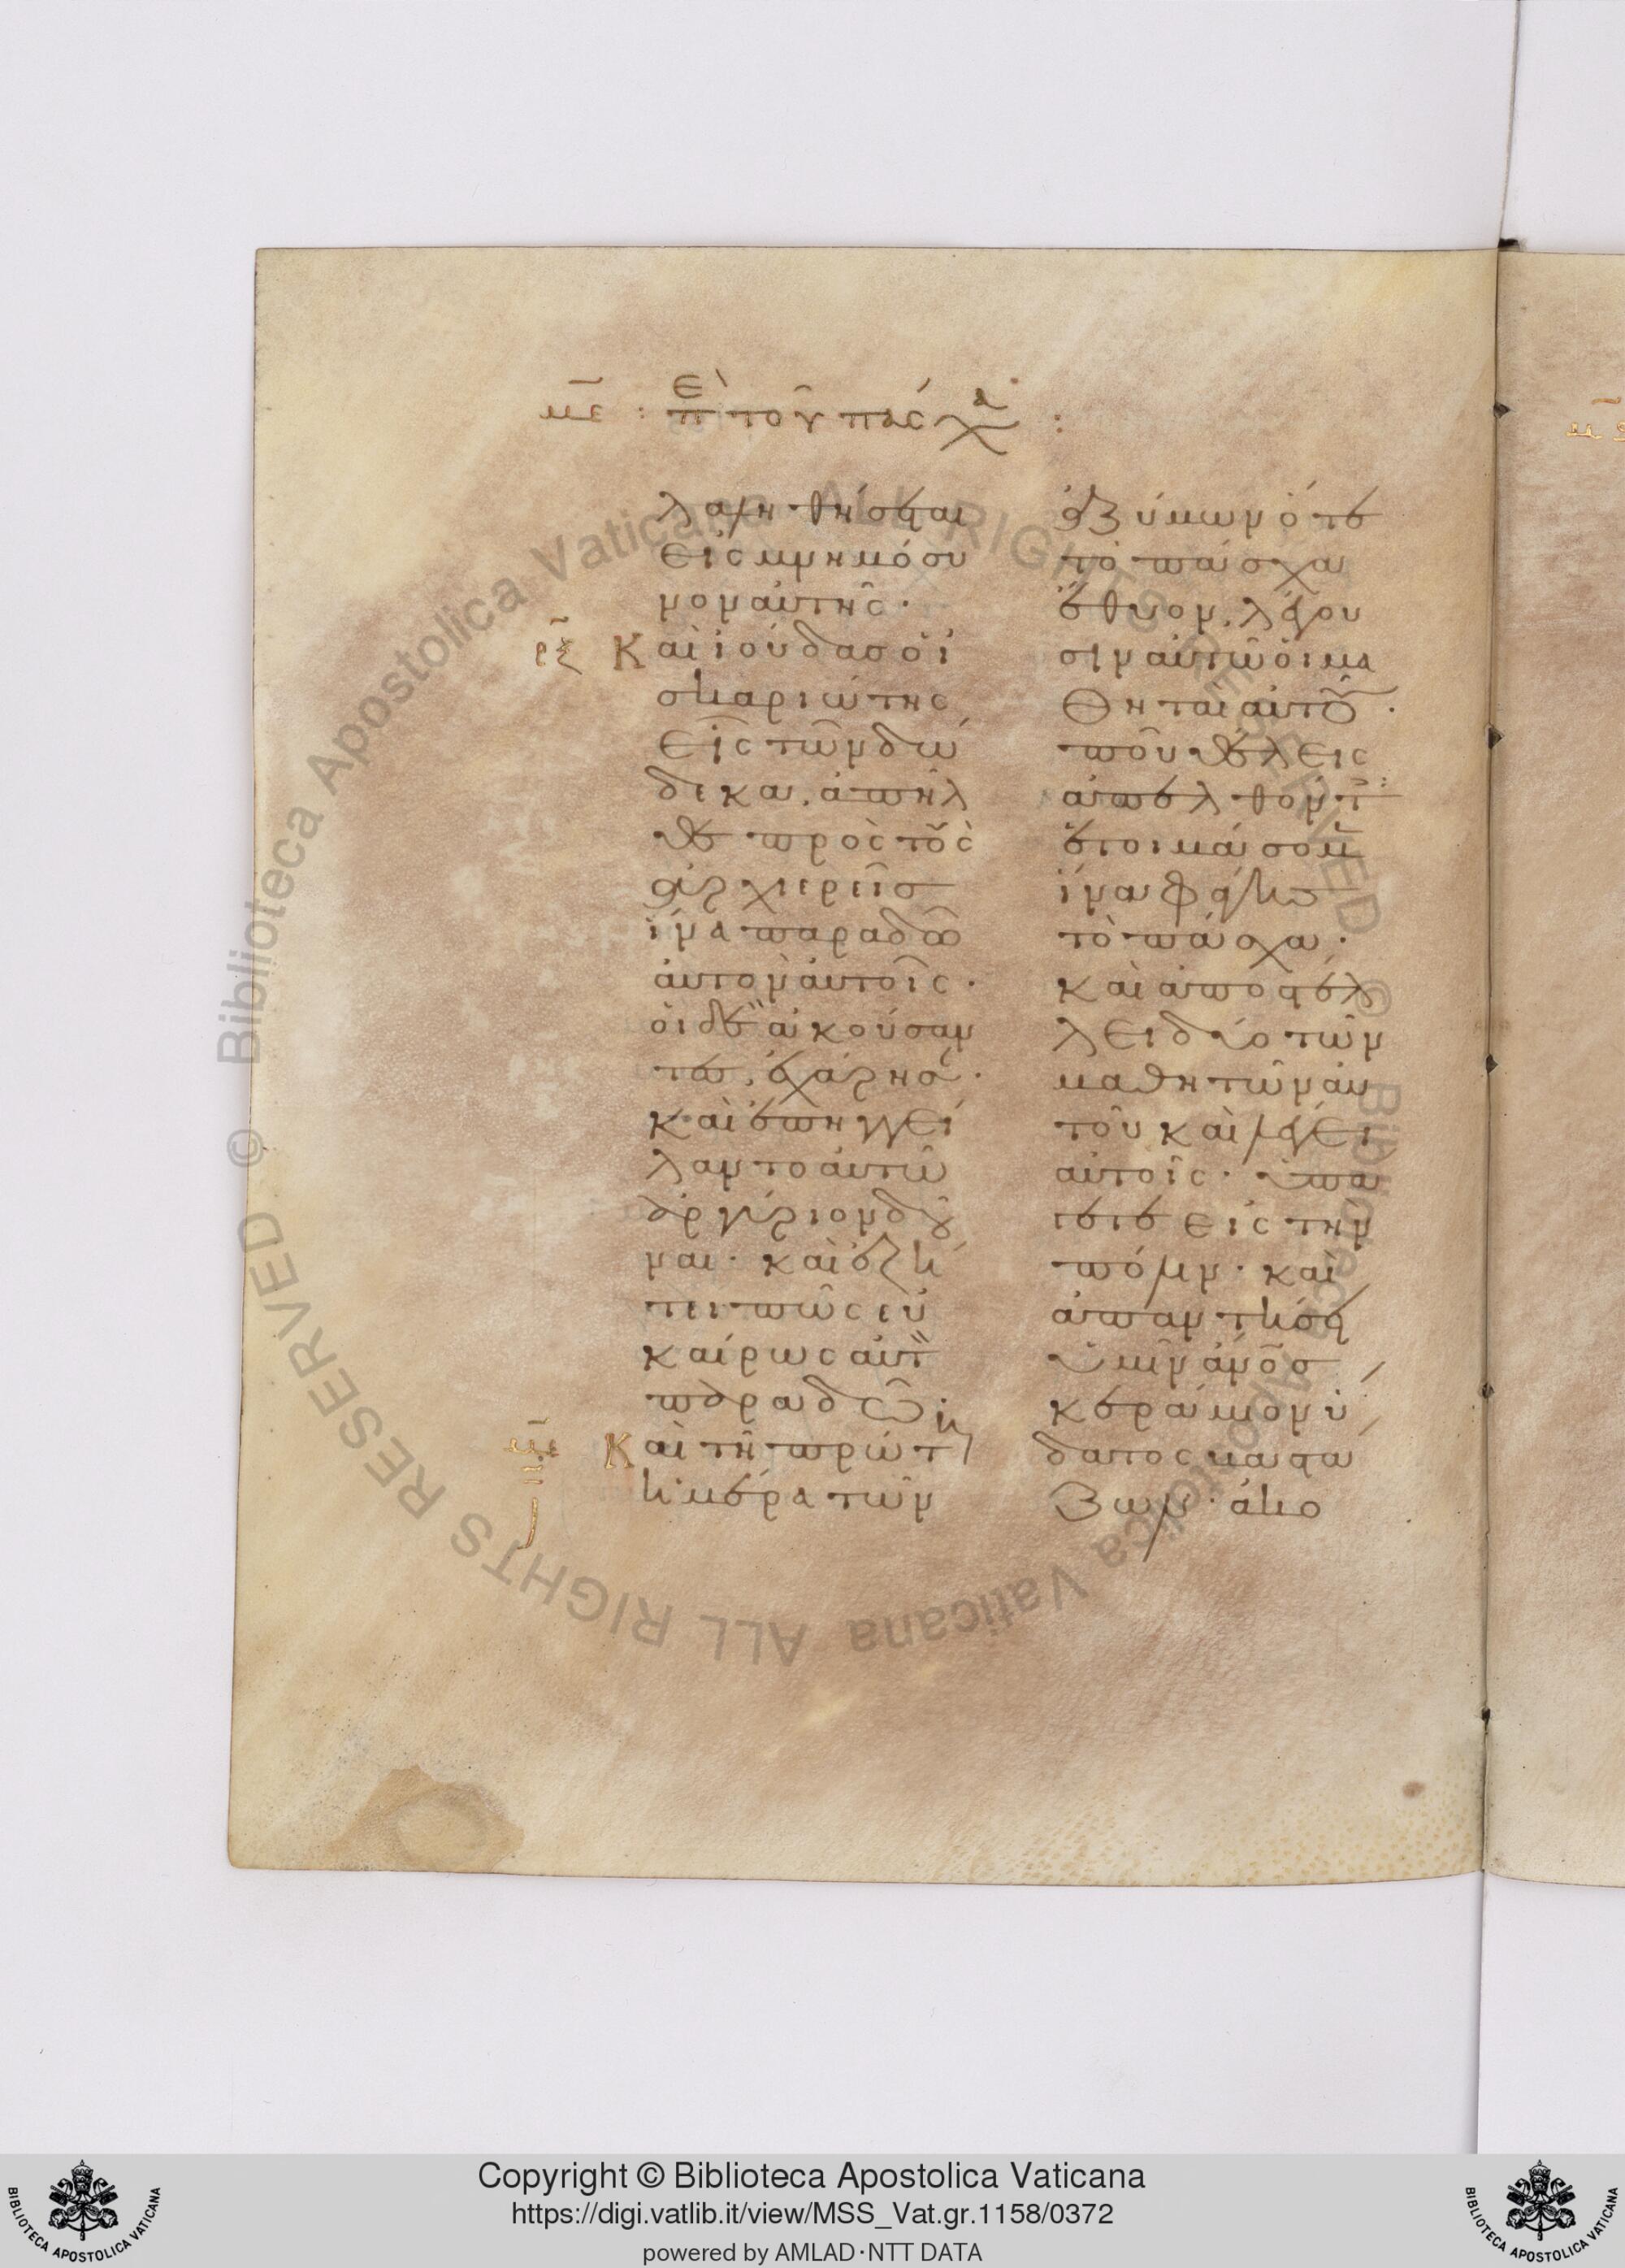 με : Επὶ τοῦ πάσχα :
λαληθήσεται
εἰς μνημόσυ
νον αὐτῆς.
ρξ Καὶ ἰούδασ ὁ ἰ
σκαριώτης
εἷς τῶν δώ
δεκα, ἀπῆλ
θε πρὸς τοὺς
ἀρχιερεῖσ
ἵνα παραδῶ
αὐτὸν αὐτοῖς.
οἱ δὲ ἀκούσαν
τες, ἐχάρησαν.
καὶ ἐπηγγεί
λαντο αὐτῶ
ἀργύριον δοῦ
ναι. καὶ ἐζή
τει πῶς εὐ
καίρως αὐτὸν
παραδῶ.
με Καὶ τῆ πρώτη
ἡμέρα τῶν
ἀζύμων ὅτε
τὸ πάσχα
ἔθυον, λέγου
σιν αὐτῶ οἱ μα
θηταὶ αὐτοῦ.
ποῦ θέλεις
ἀπελθόντες
ἑτοιμάσομεν
ἵνα φάγης
τὸ πάσχα.
καὶ ἀποστέλ
λει δύο τῶν
μαθητῶν αὐ
τοῦ καὶ λέγει
αὐτοῖς. ὑπά
γετε εἰς τὴν
πόλιν. καὶ
ἀπαντήσει
ὑμῖν ἄνοσ
κεράμιον ὕ
δατος βαστά
ζων. ἀκο
Copyright © Biblioteca Apostolica Vaticana
https://digi.vatlib.it/view/MSS_Vat.gr.1158/0372
powered by AMLAD·NTT DATA
BIBLIOTECA APOSTOLICA VATICANA
BIBLIOTECA APOSTOLICA VATICANA
Biblioteca Apostolica Vaticana ALL RIGHTS RESERVED © Biblioteca Apostolica Vaticana ALL RIGHTS RESERVED ©